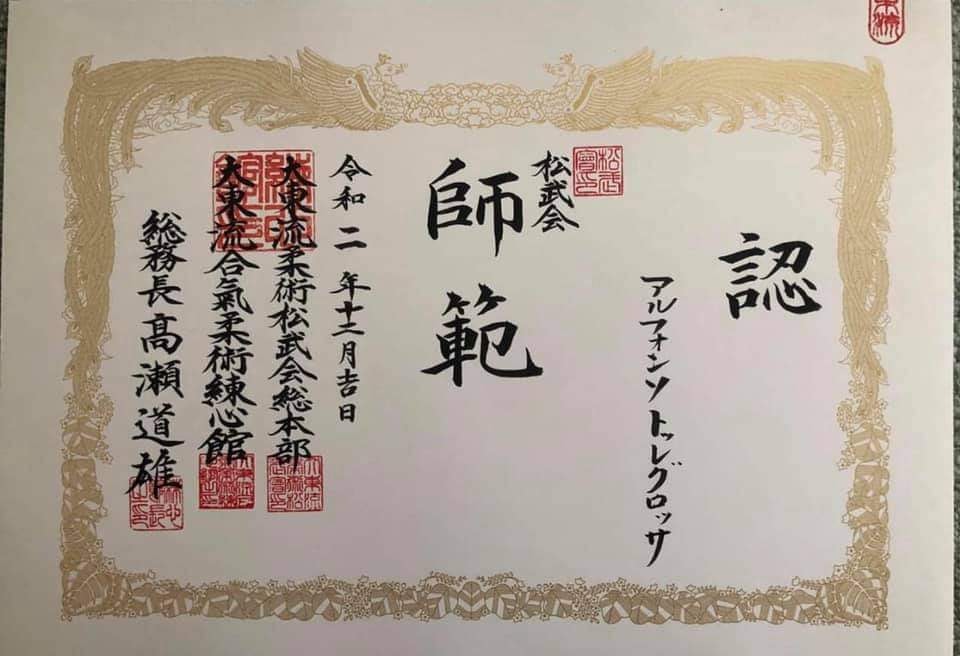 認
アルフォンソ トッレグロッサ
松武会
師範
令和二年十二月吉日
大東流柔術松武会総本部
大東流合氣柔術練心館
総務長髙瀬道雄